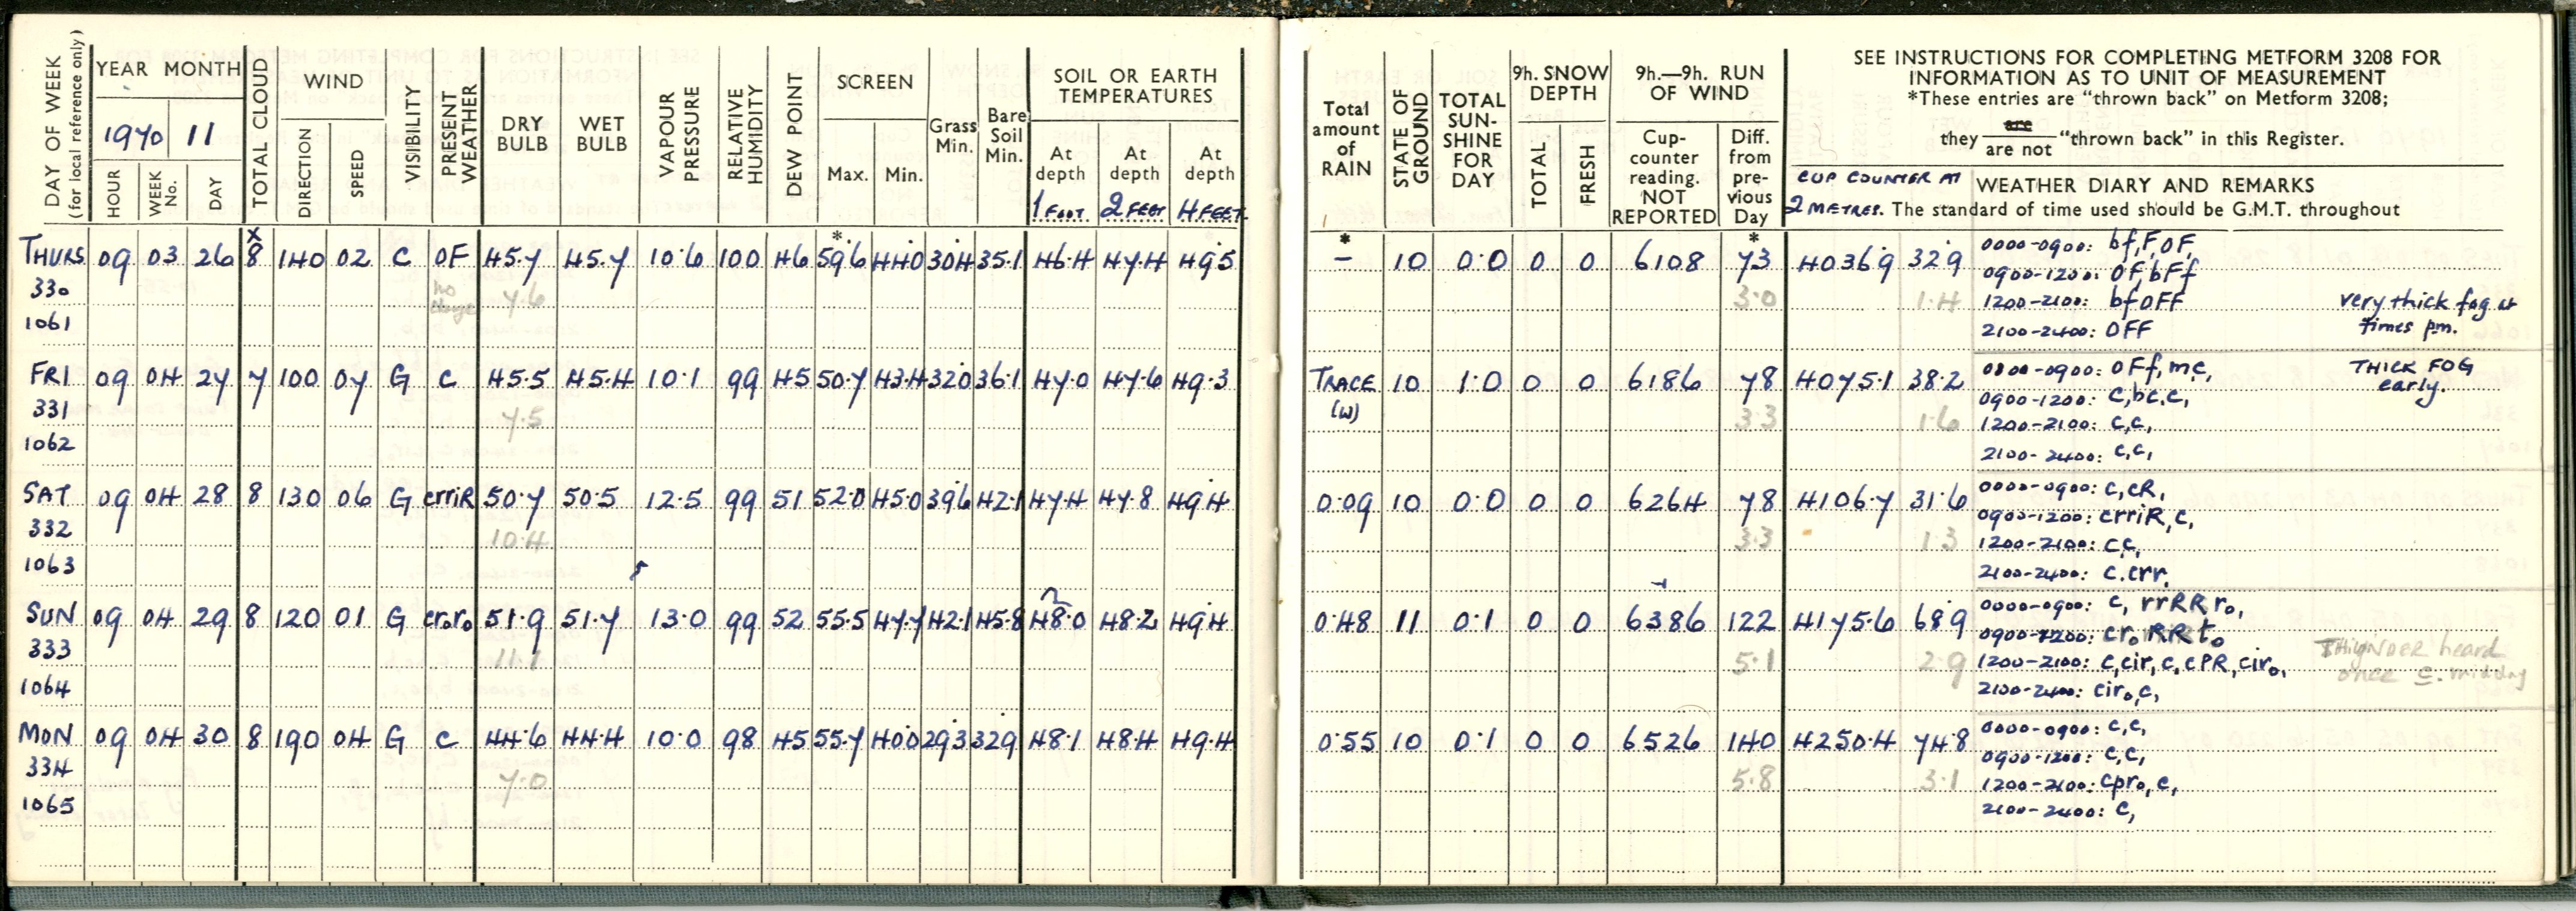 DAY OF WEEK
(for local reference only)
YEAR MONTH
1970 11
HOUR WEEK No. DAY
TOTAL CLOUD
WIND
DIRECTION SPEED
VISIBILITY
PRESENT WEATHER
DRY BULB
WET BULB
VAPOUR PRESSURE
RELATIVE HUMIDITY
DEW POINT
SCREEN
Max. Min.
Grass Min.
Bare Soil Min.
SOIL OR EARTH
TEMPERATURES
At depth At depth At depth
1 FOOT 2 FEET 4 FEET
x * 
THURS 09 03 26 8 140 02 C OF 45.7 45.7 10.6 100 46 59.6 44.0 30.4 35.1 46.4 47.4 49.5
330 no change 7.6
1061
FRI 09 04 27 7 100 07 G C 45.5 45.4 10.1 99 45 50.7 43.4 32.0 36.1 47.0 47.6 49.3
331 7.5
1062
SAT 09 04 28 8 130 06 G crriR 50.7 50.5 12.5 99 51 52.0 45.0 39.6 42.1 47.4 47.8 49.4
332 10.4
1063
SUN 09 04 29 8 120 01 G croro 51.9 51.7 13.0 99 52 55.5 47.7 42.1 45.8 48.0 48.2 49.4
333 11.1
1064
MON 09 04 30 8 190 04 G C 44.6 44.4 10.0 98 45 55.7 40.0 29.3 32.9 48.1 48.4 49.4
334 7.0
1065
Total amount of RAIN
STATE OF GROUND
TOTAL SUN- SHINE FOR DAY
9h. SNOW DEPTH
TOTAL FRESH
9h.—9h. RUN OF WIND
Cup- counter reading. NOT REPORTED
Diff. from pre- vious Day
SEE INSTRUCTIONS FOR COMPLETING METFORM 3208 FOR
INFORMATION AS TO UNIT OF MEASUREMENT
*These entries are "thrown back" on Metform 3208;
they are / are not "thrown back" in this Register.
CUP COUNTER AT
2 METRES.
WEATHER DIARY AND REMARKS
The standard of time used should be G.M.T. throughout
* *
- 10 0.0 0 0 6108 73 4036.9 32.9 0000-0900: bf,F,OF,
0900-1200: OF,bFf
3.0 1.4 1200-2100: bfOFF very thick fog at
2100-2400: OFF times pm.
TRACE 10 1.0 0 0 6186 78 4075.1 38.2 0000-0900: OFf,mc, THICK FOG
(w) 0900-1200: c,bc,c, early.
3.3 1.6 1200-2100: c,c,
2100-2400: c,c,
0.09 10 0.0 0 0 6264 78 4106.7 31.6 0000-0900: c,cR,
0900-1200: crriR,c,
3.3 1.3 1200-2100: c,c,
2100-2400: c,crr,
0.48 11 0.1 0 0 6386 122 4175.6 68.9 0000-0900: c, rrRRro,
0900-1200: croRRto
5.1 2.9 1200-2100: c,cir,c,cPR,ciro, THUNDER heard
2100-2400: ciro,c, once c. midday
0.55 10 0.1 0 0 6526 140 4250.4 74.8 0000-0900: c,c,
0900-1200: c,c,
5.8 3.1 1200-2100: cpro,c,
2100-2400: c,